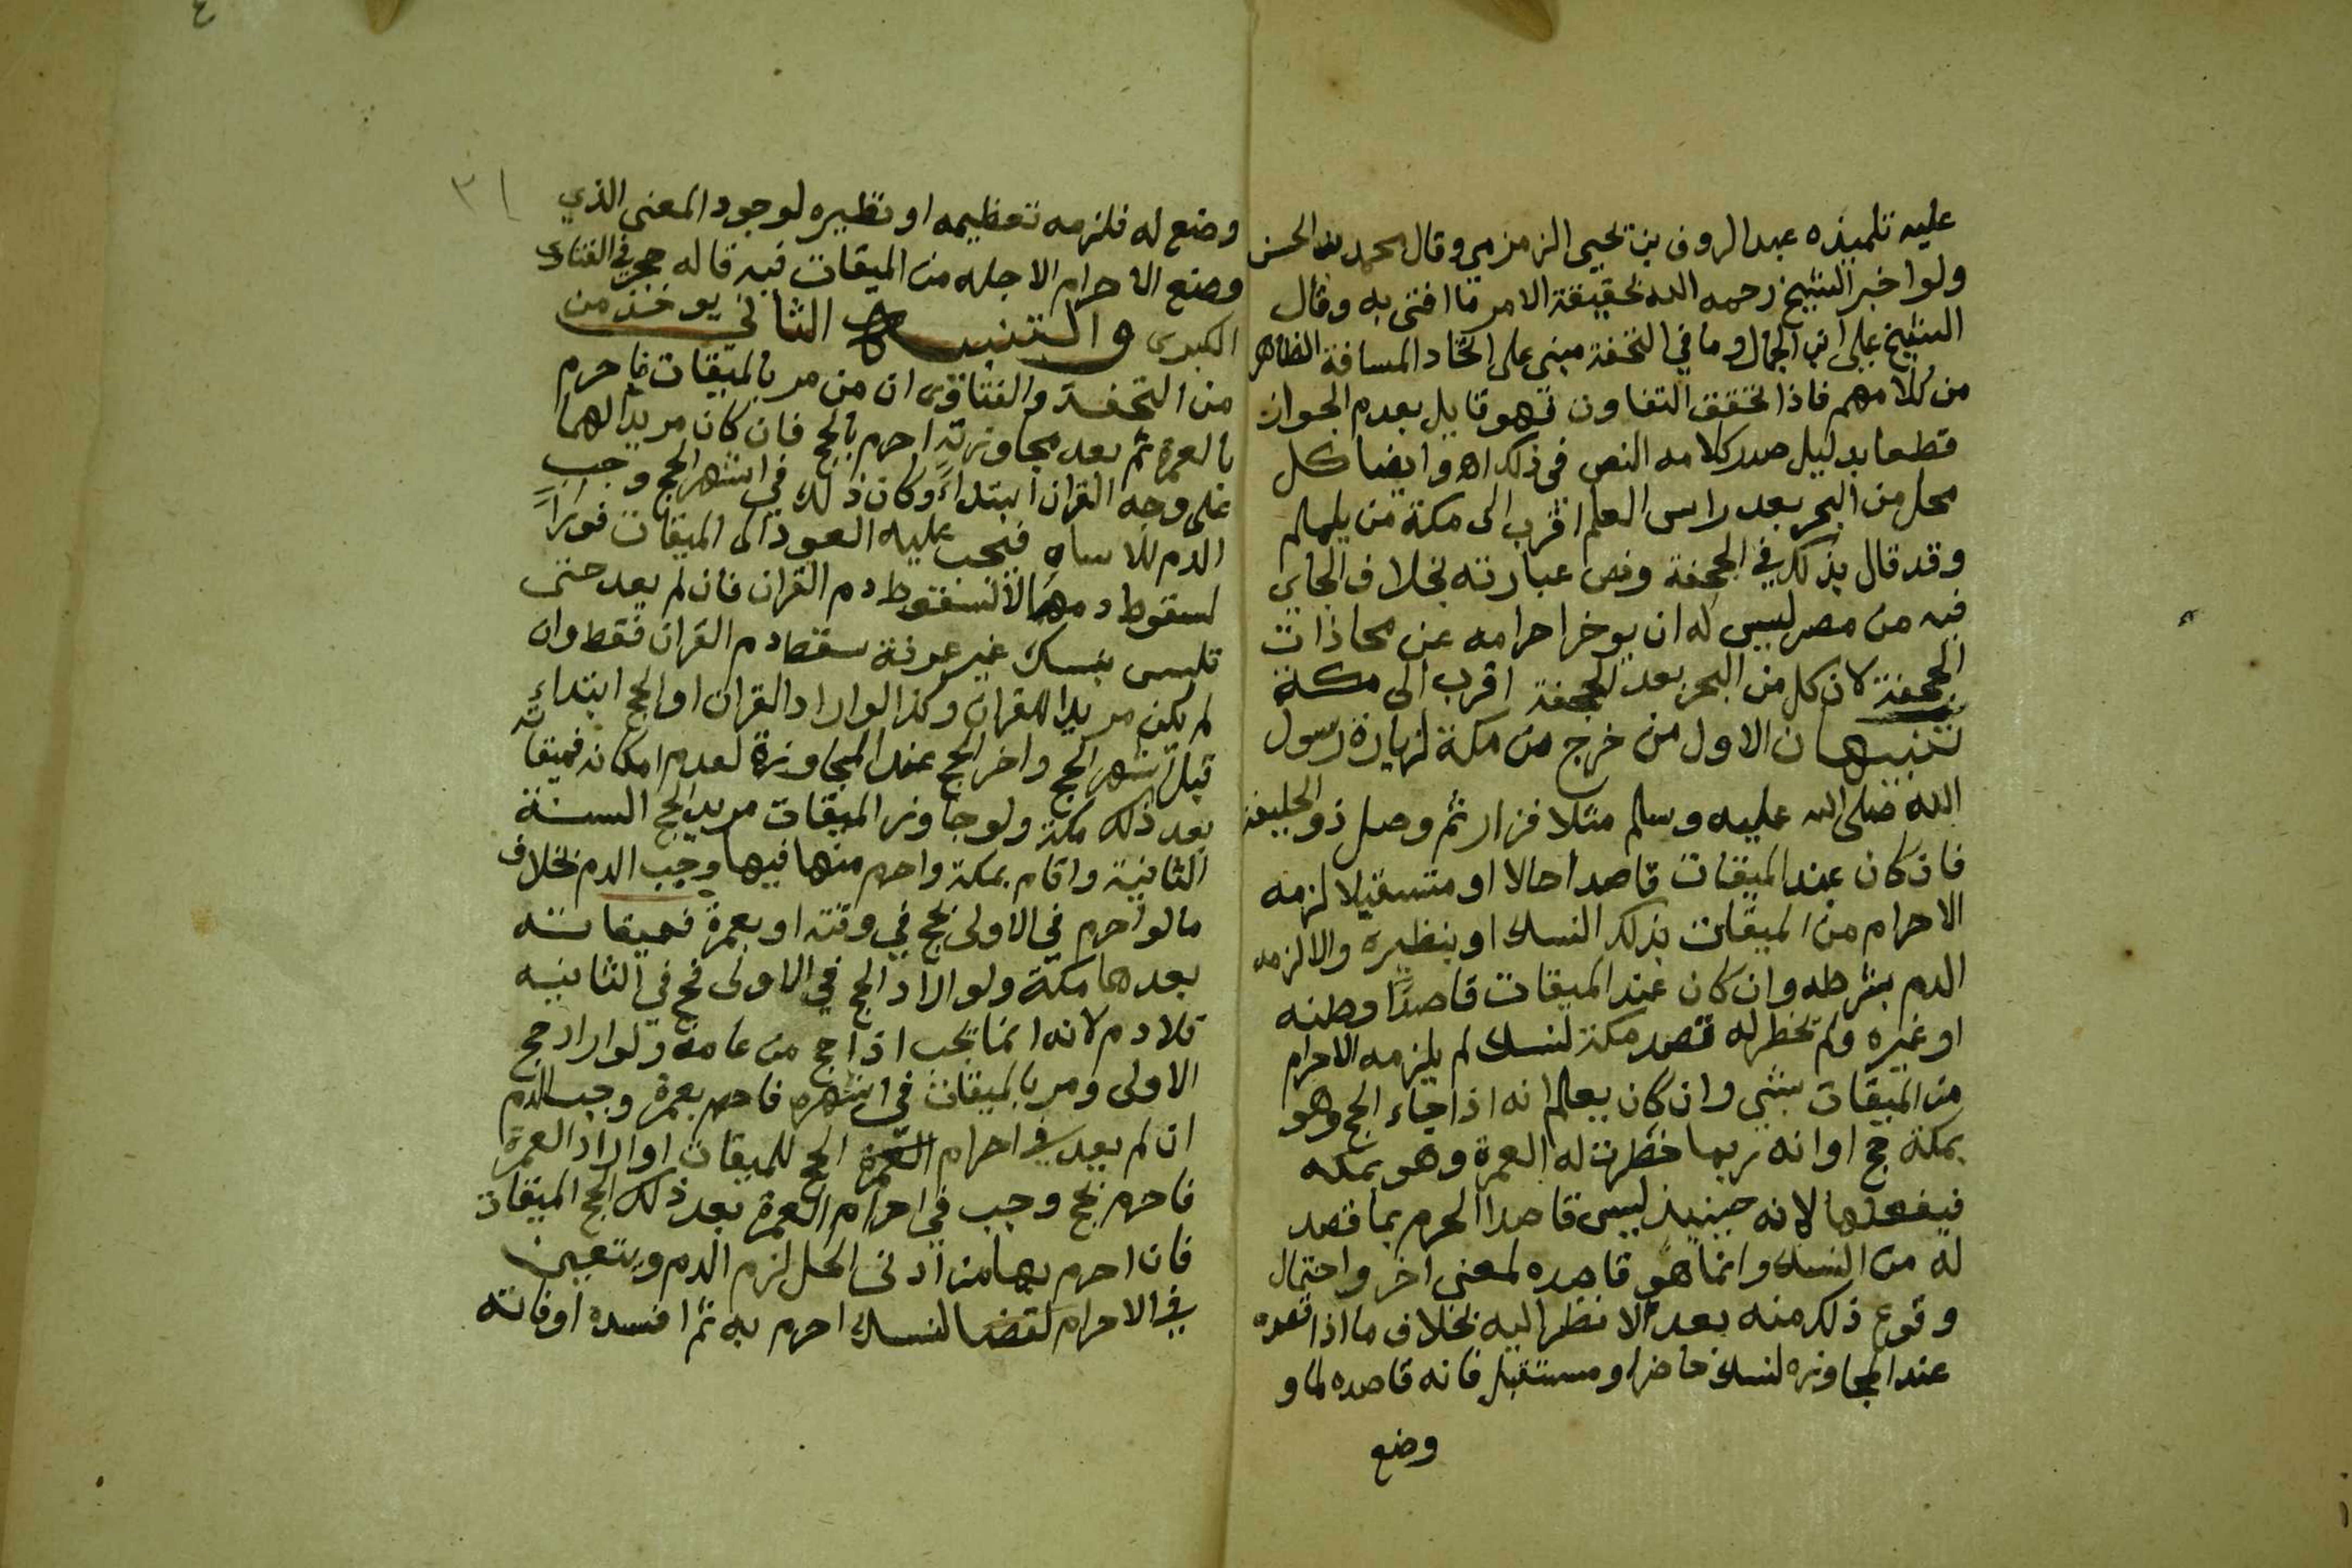 عليه تلميذه عبد الروف بن يحيى الزمزمي وقال محمد بن الحسن
ولو اخبر الشيخ رحمه الله بحقيقة الامر ما افتى به وقال
الشيخ علي ابن الجمال وما في التحفة مبني على اتحاد المسافة الظاهر
من كلامهم فاذا تحقق التفاوت فهو قايل بعدم الجواز
قطعا بدليل صدر كلامه النص في ذلك اه وايضا كل
محل من البحر بعد راس العلم اقرب الى مكة من يلملم
وقد قال بذلك في الجحفة ونص عبارته بخلاف الجاي
فيه من مصر ليس له ان يوخر احرامه عن محاذات
الجحفة لان كل من البحر بعد الجحفة اقرب الى مكة
تنبيهان الاول من خرج من مكة لزيارة رسول
الله صلى الله عليه وسلم مثلا فزار ثم وصل ذو الحليفة
فان كان عند الميقات قاصدا حالا او مستقبلا لزمه
الاحرام من الميقات بذلك النسك او بنظيره والا لزمه
الدم بشرطه وان كان عند الميقات قاصدًا وطنه
او غيره ولم يخطر له قصد مكة لنسك لم يلزمه الاحرام
من الميقات بشي وان كان يعلم انه اذا جاء الحج وهو
بمكة حج او انه ربما خطرت له العمرة وهو بمكه
فيفعلها لانه حينيذ ليس قاصدا الحرم بما قصد
له من النسك وانما هو قاصده لمعنى اخر واحتمال
وقوع ذلك منه بعد لا نظر اليه بخلاف ما اذا قصده
عند المجاوزه لنسك حاضر او مستقبل فانه قاصده لما و
وضع
وضع له فلزمه تعظيمه او نظيره لوجود المعنى الذي
وضع الاحرام لاجله من الميقات فيه قاله حجر في الفتاوى
الكبرى والتنبيه الثاني يوخذ من
من التحفة والفتاوى ان من مر بالميقات فاحرم
بالعمرة ثم بعد مجاوزته احرم بالحج فان كان مريدا لهما
على وجه القران ابتداءً وكان ذلك في اشهر الحج وجب
الدم للاساه فيجب عليه العود الى الميقات فورًا
لسقوط دمها لا لسقوط دم القران فان لم يعد حتى
تلبس بنسك غير عرفة سقط دم القران فقط وان
لم يكن مريدا للقران وكذا لو اراد القران او الحج ابتداءً
قبل اشهر الحج واخر الحج عند المجاوزة لعدم امكانه فميقاته
بعد ذلك مكة ولو جاوز الميقات مريد الحج السنة
الثانية واقام بمكة واحرم منها فيها وجب الدم بخلاف
ما لو احرم في الاولى بحج في وقته او بعمرة فميقاته
بعدها مكة ولو اراد الحج في الاولى فحج في الثانيه
فلا دم لانه انما يجب اذا حج من عامه ولو اراد حج
الاولى ومر بالميقات في اشهره فاحرم بعمرة وجب الدم
ان لم يعد في احرام العمرة الحج للميقات او اراد العمرة
فاحرم بحج وجب في احرام العمرة بعد ذلك الحج الميقات
فان احرم بها من ادنى الحل لزم الدم ويتعين
في الاحرام لقضا لنسك احرم به ثم افسده او فاته